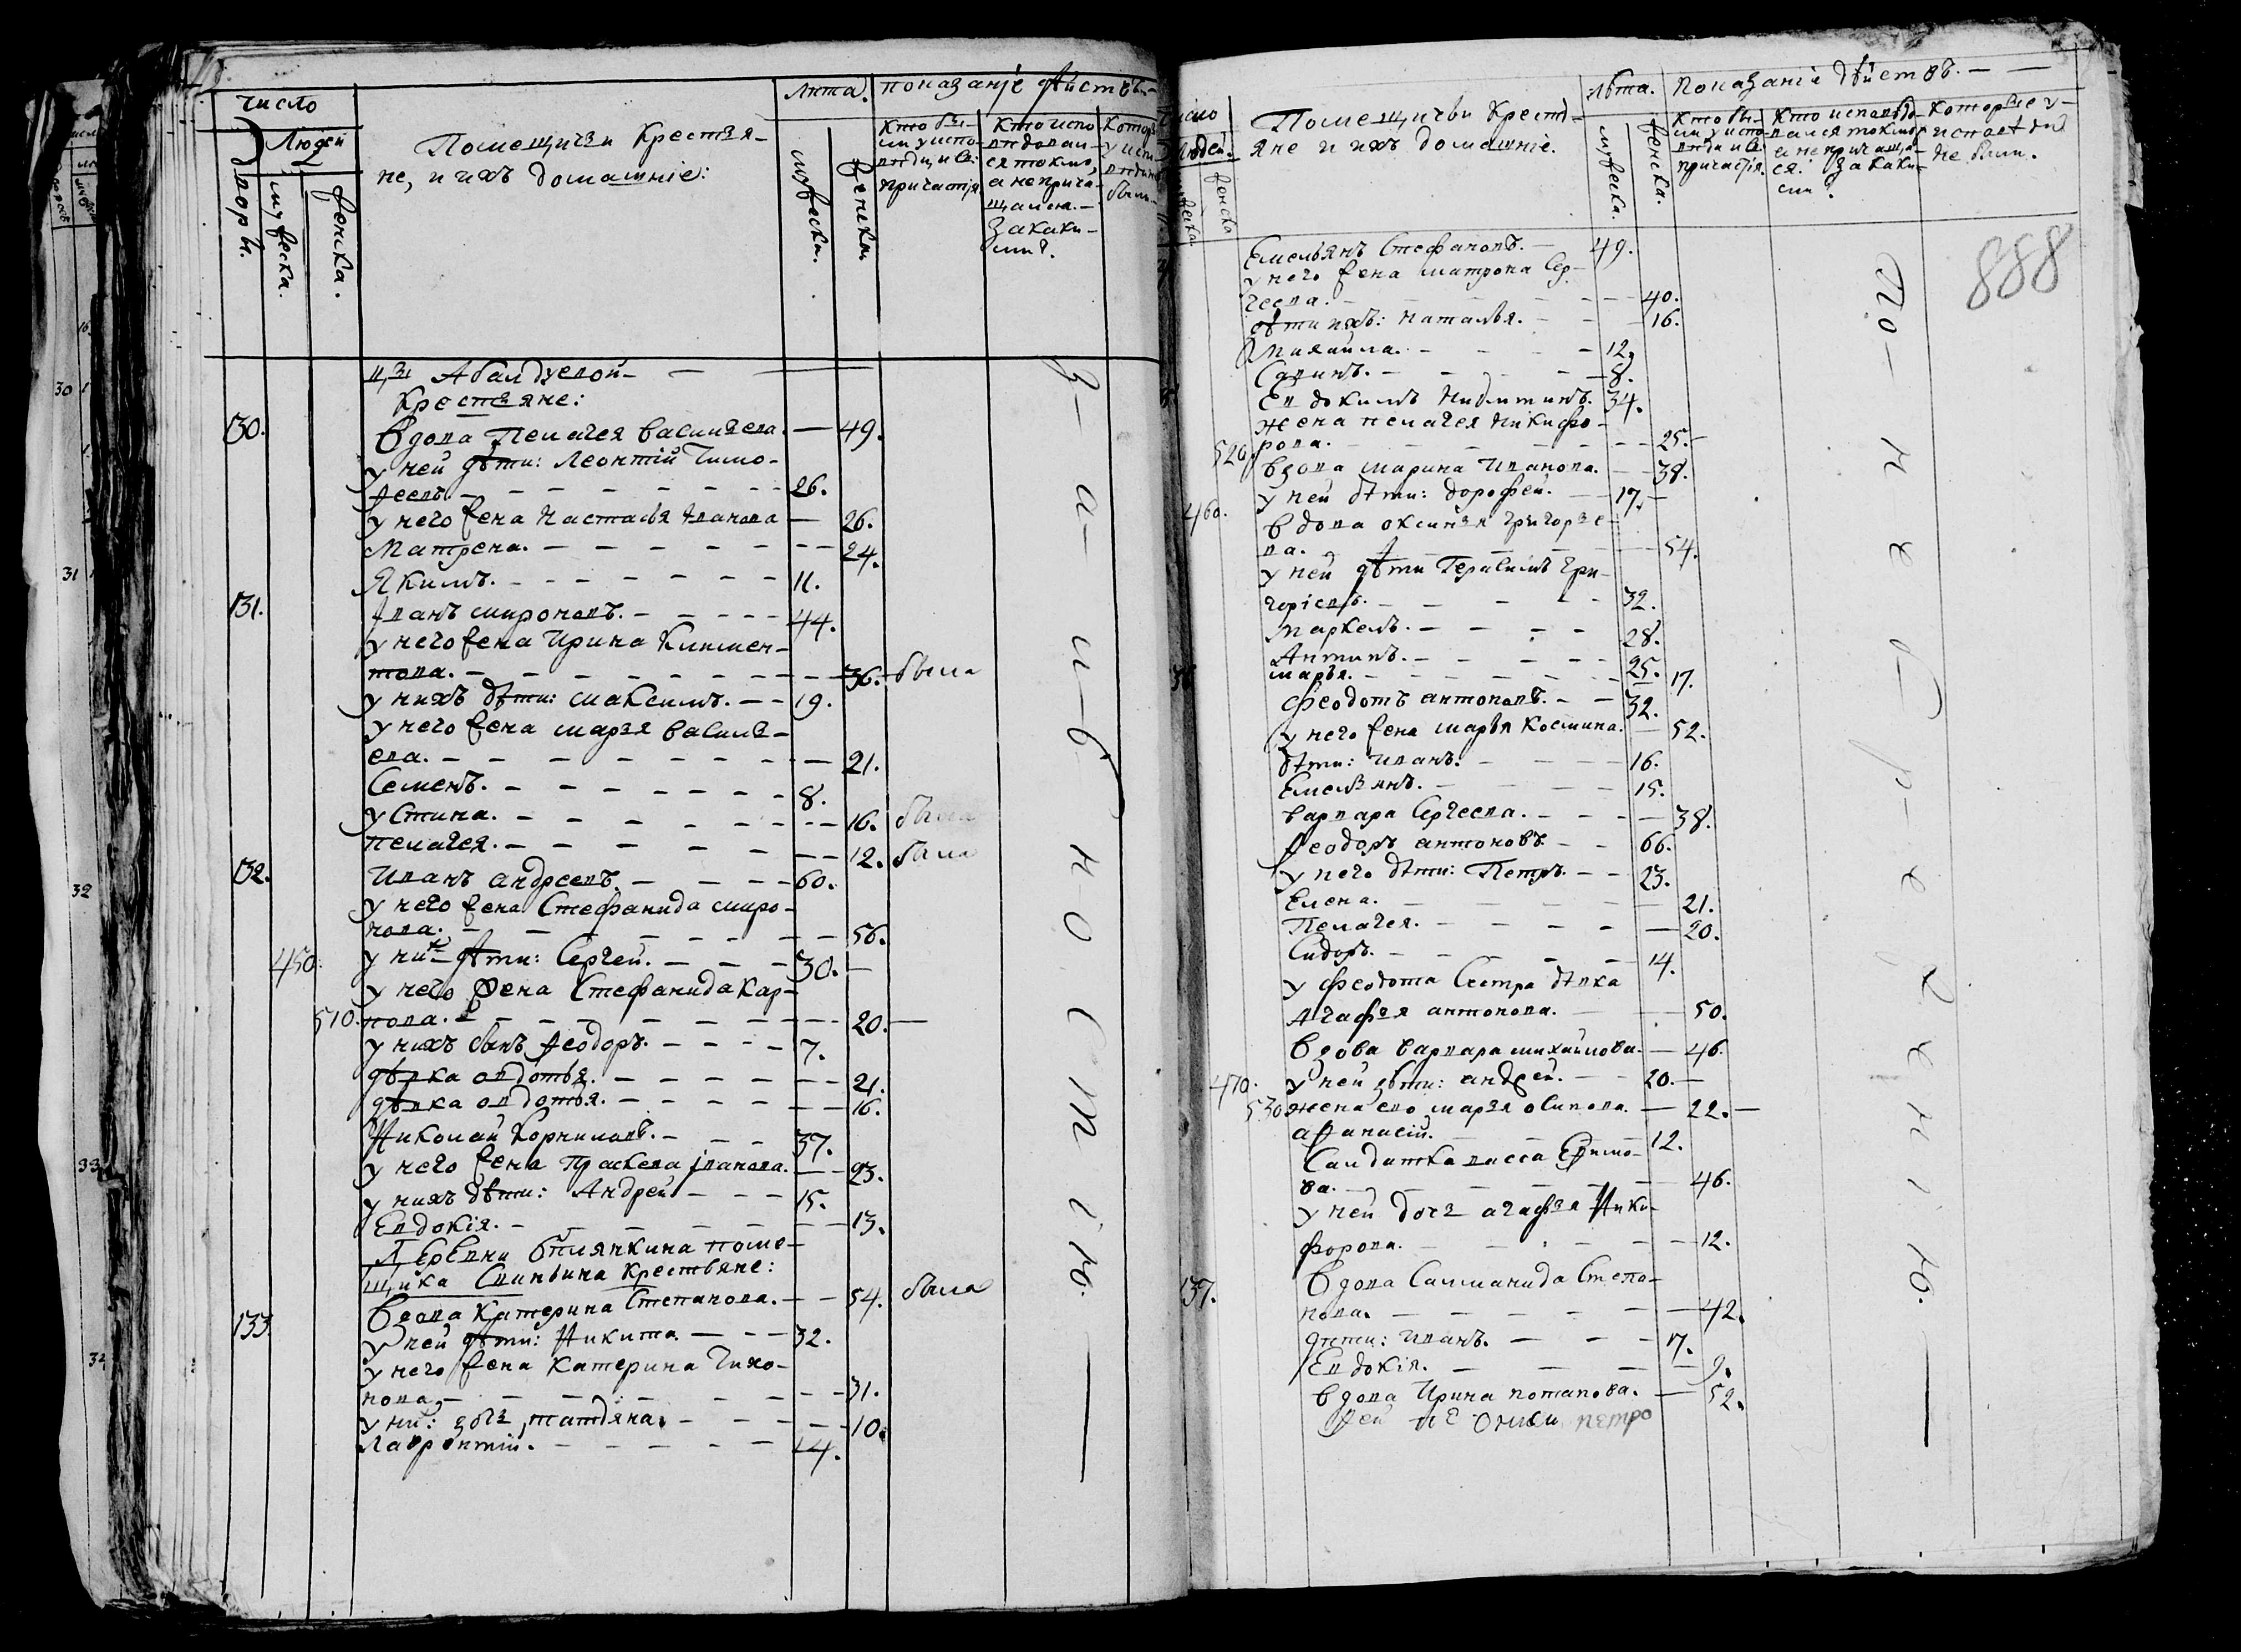 число
Людей
Дворы.
мужеска.
женска.
Помещичьи Крестья-
не, и ихъ домашніе:
Лѣта.
мужеска.
женска
показаніе действъ.
Кто бы-
ли у испо-
веди и св:
причастія
Кто испо-
ведовал-
ся токмо,
а неприча-
щался. —
За каки-
ми?
Крестьяне:
130.
Вдова Пелагея Васильева. — 49.
у ней дѣти: Леонтій Тимо-
феевъ. — 26.
у него жена Настасья Иванова — 26.
Матрена. — 24.
Якимъ. — 11.
131.
Іванъ Мироновъ. — 44.
у него жена Ирина Климен-
това. — 36. была
у нихъ дѣти: Максимъ. — 19.
у него жена Марья Василь-
ева. — 21.
Семенъ. — 8.
устина. — 16. была
пелагея. — 12. была
132.
Иванъ андреевъ. — 60.
у него жена Стефанида миро-
нова. — 56.
450.
у них дѣти: Сергей. — 30. —
у него жена Стефанида Кар-
510.
пова. — 20. —
у нихъ сынъ Ѳеодоръ. — 7.
дѣвка овдотья. — 21.
дѣвка овдотья. — 16.
Николай Корниловъ. — 37.
у него жена Праскева іванова. — 23.
у нихъ дѣти: Андрей — 15.
Евдокія. — 13.
щика Свиньина Крестьяне:
133.
Вдова Катерина Степанова. — 54. была
у ней дѣти: Никита — 32.
у него жена Катерина Тихо-
нова — 31.
у ни: дочь татьяна. — 10.
Лаврентій. — 14.
За малолетс
Помещичьи Кресть-
яне и ихъ домашніе.
лѣта.
мужеска.
женска.
Показаніе дѣйствъ. —
Кто бы-
ли у испо-
веди и св:
причастія.
Кто исповѣдо-
вался токмо,
а непричащал-
ся. За каки-
ми?
Которые у
исповеди
не были.
888
Емельянъ Стефановъ. — 49.
у него жена матрона Сер-
геева. — 40.
дѣти ихъ: наталья. — 16.
михайла. — 12.
Савинъ. — 8.
Евдокимъ Никитинъ. 34.
жена пелагея Никифо-
520.
рова. — 25. —
Вдова марина Иванова. — 38.
у ней дѣти: дорофей. — 17. —
460.
Вдова оксинья григорье-
ва. — 54.
у ней дѣти Герасимъ Гри-
горіевъ. — 32.
Маркелъ. — 28.
Антипъ. — 25.
марья. — 17.
Феодотъ антоновъ. — 32.
у него жена марья Космина. — 52.
дѣти: иванъ. — 16.
Емельянъ. — 15.
варвара Сергеева. — 38.
Ѳеодоръ антоновъ — 66.
у него дѣти: Петръ. — 23.
Елена. — 21.
Пелагея. — 20.
Сидоръ. — 14.
у Феодота Сестра дѣвка
Агафья антонова. — 50.
Вдова варвара михайлова. — 46.
470.
у ней дѣти: андрей. — 20. —
530.
жена ево марья осипова. — 22. —
афанасій. — 12.
Салдатка васса Ефимо-
ва. — 46.
у ней дочь агафья Ники-
форова. — 12.
137.
Вдова Саломанида Степа-
нова. — 42.
дѣти: иванъ. — 17.
Евдокія. — 9.
вдова Ирина потапова. — 52.
По — небреженію. —